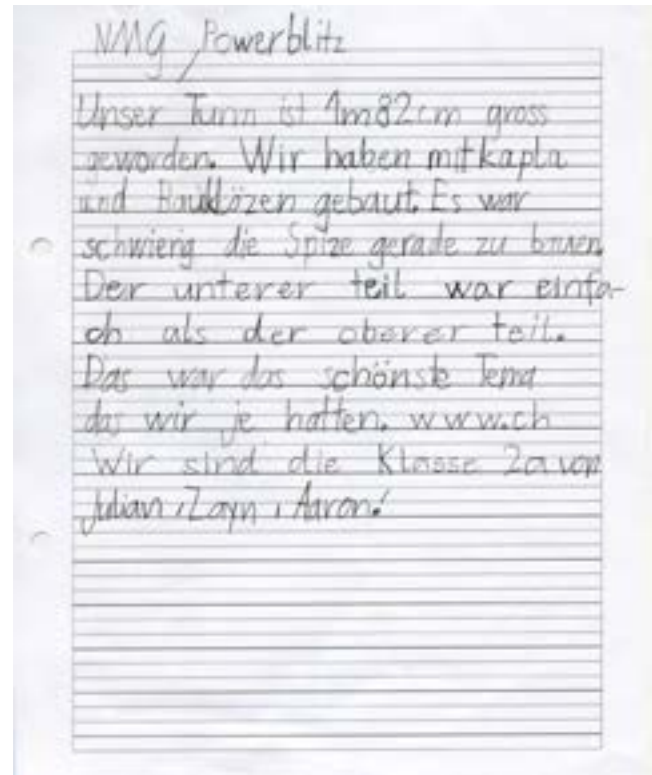 NMG Powerblitz
Unser Turm ist 1m82cm gross
geworden. Wir haben mit kapla
und Bauklözen gebaut. Es war
schwierig die Spize gerade zu bauen.
Der unterer teil war einfa-
ch als der oberer teil.
Das war das schönste Tema
das wir je hatten. www.ch
Wir sind die Klasse 2a von
Julian, Zayn, Aaron!